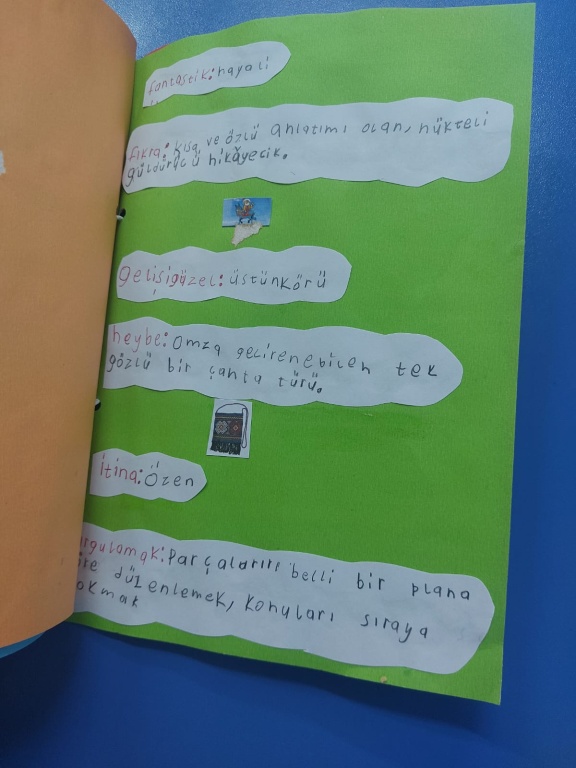 fantastik: hayali
fıkra: kısa ve özlü anlatımı olan, nükteli
güldürücü hikâyecik.
gelişigüzel: üstünkörü
heybe: Omza geçirenebilen tek
gözlü bir çanta türü.
itina: Özen
rgulamak: Parçalarını belli bir plana
re düzenlemek, konuları sıraya
okmak